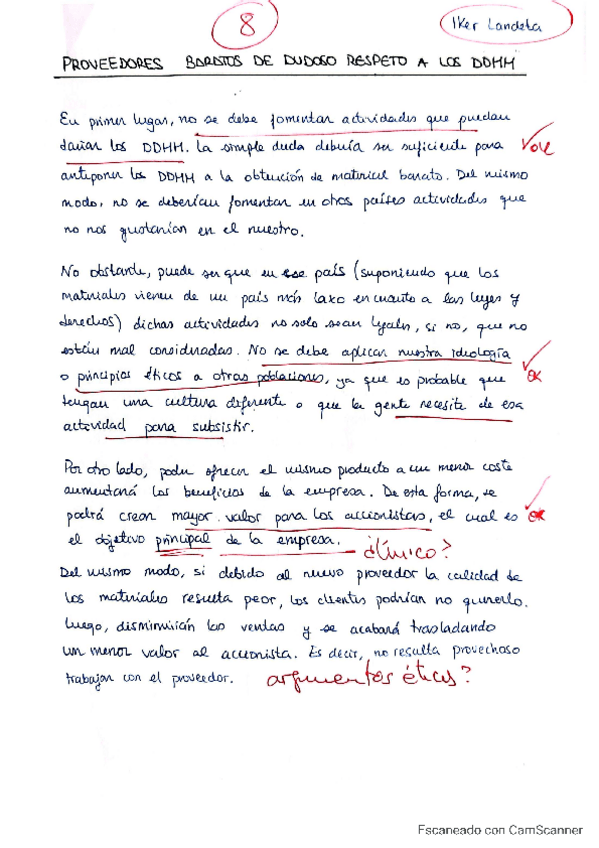 8
Iker Landeta
PROVEEDORES BARATOS DE DUDOSO RESPETO A LOS DDHH
En primer lugar, no se debe fomentar actividades que puedan
dañar los DDHH. La simple duda debería ser suficiente para
anteponer los DDHH a la obtención de material barato. Del mismo
modo, no se deberían fomentar en otros países actividades que
no nos gustarían en el nuestro.
No obstante, puede ser que en ese país (suponiendo que los
materiales vienen de un país más laxo en cuanto a las leyes y
derechos) dichas actividades no solo sean legales, si no, que no
están mal consideradas. No se debe aplicar nuestra ideología
o principios éticos a otras poblaciones, ya que es probable que ok
tengan una cultura diferente o que la gente necesite de esa
actividad para subsistir.
Por otro lado, poder ofrecer el mismo producto a un menor coste
aumentará los beneficios de la empresa. De esta forma, se
podrá crear mayor valor para los accionistas, el cual es ok
el objetivo principal de la empresa. ¿Único?
Del mismo modo, si debido al nuevo proveedor la calidad de
los materiales resulta peor, los clientes podrían no quererlo.
Luego, disminuirán las ventas y se acabará trasladando
un menor valor al accionista. Es decir, no resulta provechoso
trabajar con el proveedor. argumentos éticos?
Escaneado con CamScanner